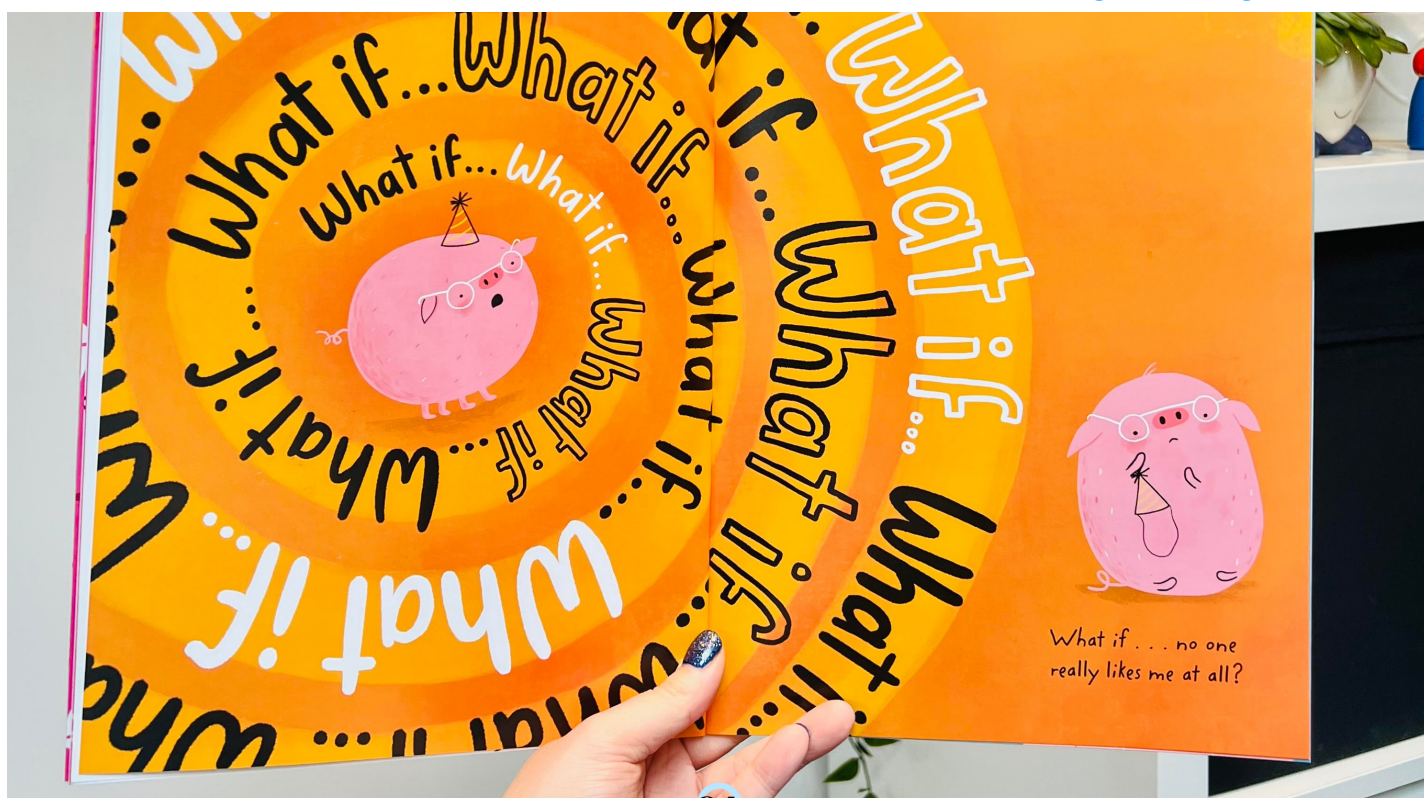 What if...What if...
What if
What if...What if...What if...
What if...What if...
What if...
What if...
What if...
What if...
What if...
What if . . . no one
really likes me at all?